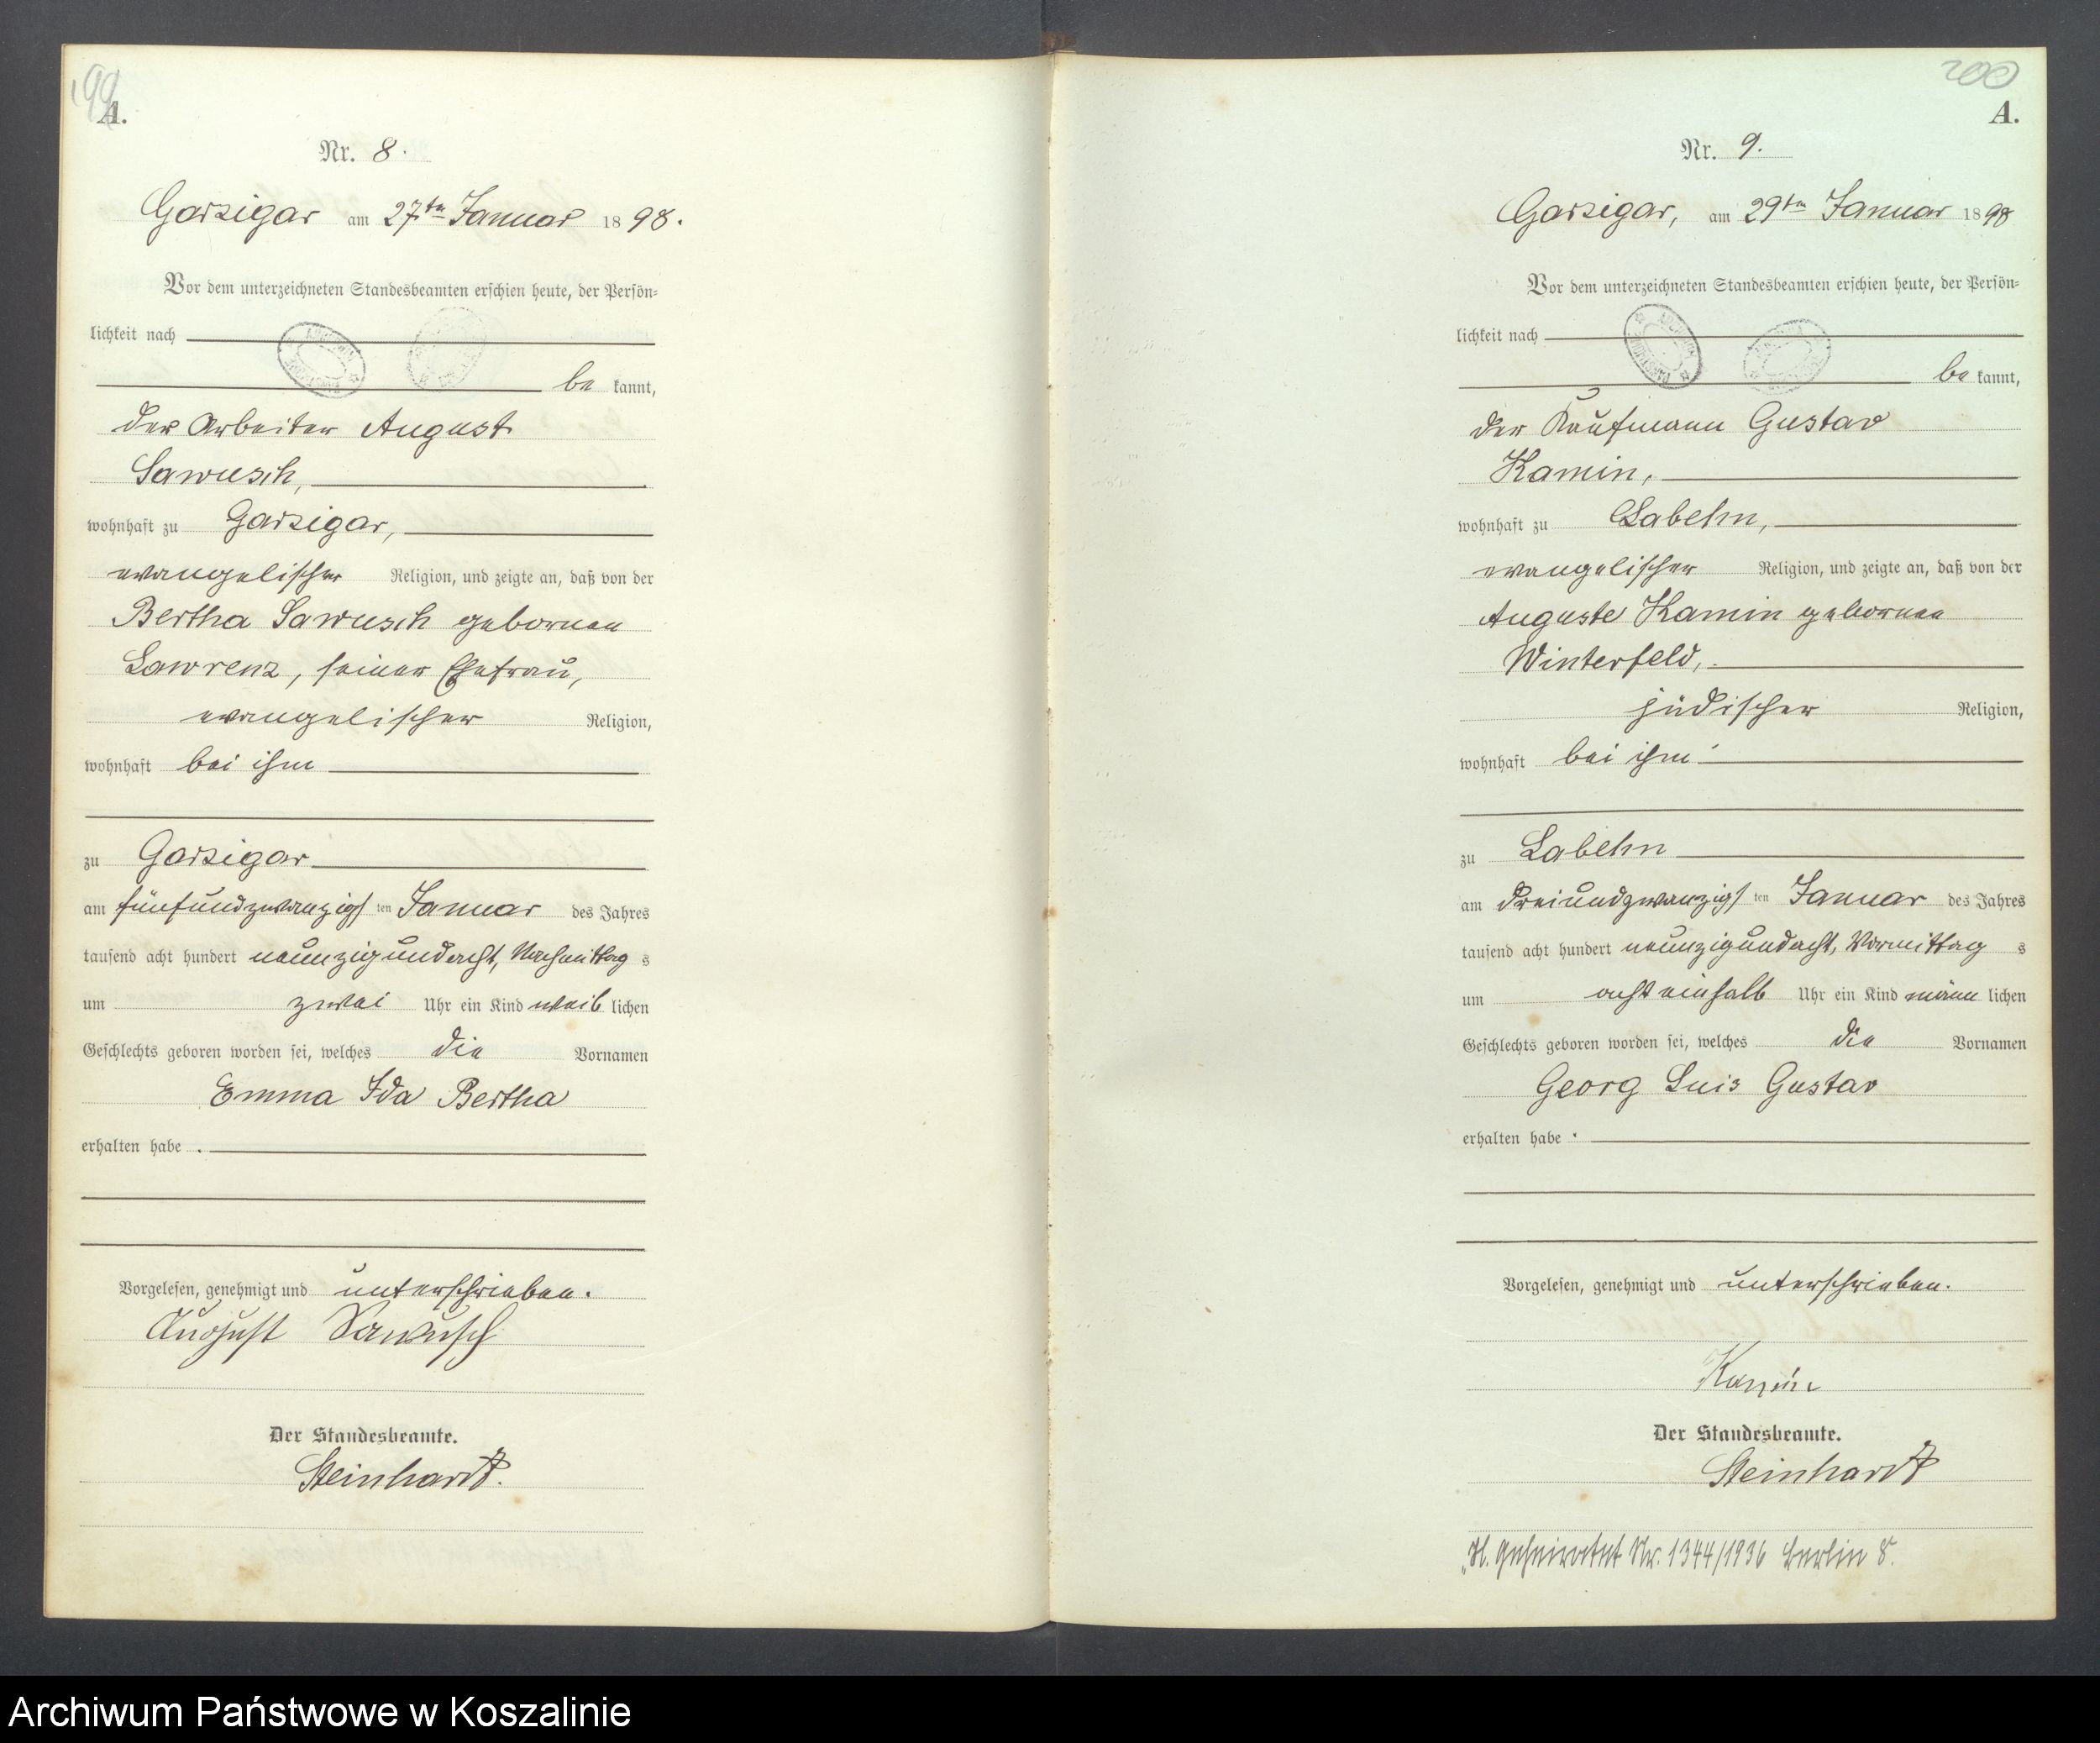 199
A.
Nr. 8.
Garzigar am 27ten Januar 1898.
Vor dem unterzeichneten Standesbeamten erschien heute, der Persön-
lichkeit nach
be kannt,
der Arbeiter August
Sawusch,
wohnhaft zu Garzigar,
evangelischer Religion, und zeigte an, daß von der
Bertha Sawusch gebornen
Lawrenz, seiner Ehefrau,
evangelischer Religion,
wohnhaft bei ihm
zu Garzigar
am fünfundzwanzigsten Januar des Jahres
tausend acht hundert neunzigundacht, Nachmittags
um zwei Uhr ein Kind weiblichen
Geschlechts geboren worden sei, welches die Vornamen
Emma Ida Bertha
erhalten habe.
Vorgelesen, genehmigt und unterschrieben.
August Sawusch
Der Standesbeamte.
Steinhardt.
200
A.
Nr. 9.
Garzigar, am 29ten Januar 1898
Vor dem unterzeichneten Standesbeamten erschien heute, der Persön-
lichkeit nach
be kannt,
der Kaufmann Gustav
Kamin,
wohnhaft zu Labehn,
evangelischer Religion, und zeigte an, daß von der
Auguste Kamin gebornen
Winterfeld,
jüdischer Religion,
wohnhaft bei ihm
zu Labehn
am dreiundzwanzigsten Januar des Jahres
tausend acht hundert neunzigundacht, Vormittags
um achteinhalb Uhr ein Kind männlichen
Geschlechts geboren worden sei, welches die Vornamen
Georg Luis Gustav
erhalten habe.
Vorgelesen, genehmigt und unterschrieben.
Kamin
Der Standesbeamte.
Steinhardt
geheiratet Nr. 1344/1936 Berlin
Archiwum Państwowe w Koszalinie